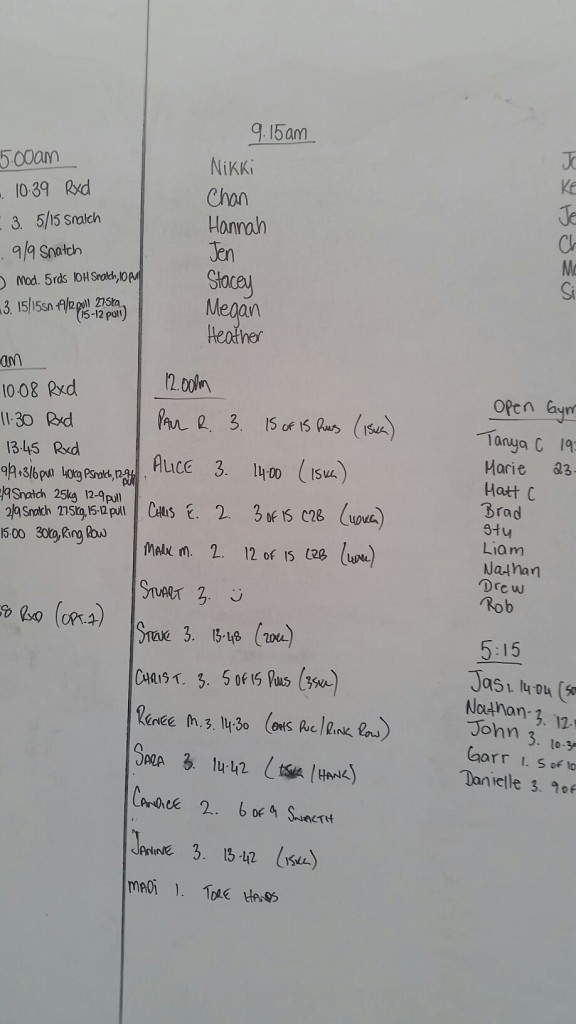 5:00am
10.39 Rxd
3. 5/15 Snatch
9/9 Snatch
Mod. 5rds 10H Snatch, 10 pull
3. 15/15sn +9/12 pull 27.5kg
(15-12 pull)
am
10.08 Rxd
11.30 Rxd
13.45 Rxd
9/9+3/6 pull 40kg PSnatch, 12-9
9 Snatch 25kg 12-9 pull
2/9 Snatch 27.5kg, 15-12 pull
15:00 30kg, Ring Row
8 RxD (OPT.2)
9.15am
Nikki
Chan
Hannah
Jen
Stacey
Megan
Heather
12.00pm
PAUL R. 3. 15 OF 15 PULLS (15KG)
ALICE 3. 14.00 (15KG)
CHRIS E. 2. 3 OF 15 C2B (40KG)
MARK M. 2. 12 OF 15 C2B (40KG)
STUART 3. ☺
STEVE 3. 13.48 (20KG)
CHRIS T. 3. 5 OF 15 PULLS (35KG)
RENEE M. 3. 14.30 (OHS PVC/RING ROW)
SARA 3. 14.42 (15KG/HANG)
CANDICE 2. 6 OF 9 SNACTH
JANINE 3. 13.42 (15KG)
MADi 1. TORE HANDS
Jo
Ke
Je
Ch
Ma
Si
Open Gym
Tanya C 19
Marie 23
Matt C
Brad
Stu
Liam
Nathan
Drew
Rob
5:15
Jas 1. 14.04 (50
Nathan 3. 12.
John 3. 10.30
Garr 1. 5 of 10
Danielle 3. 9 of